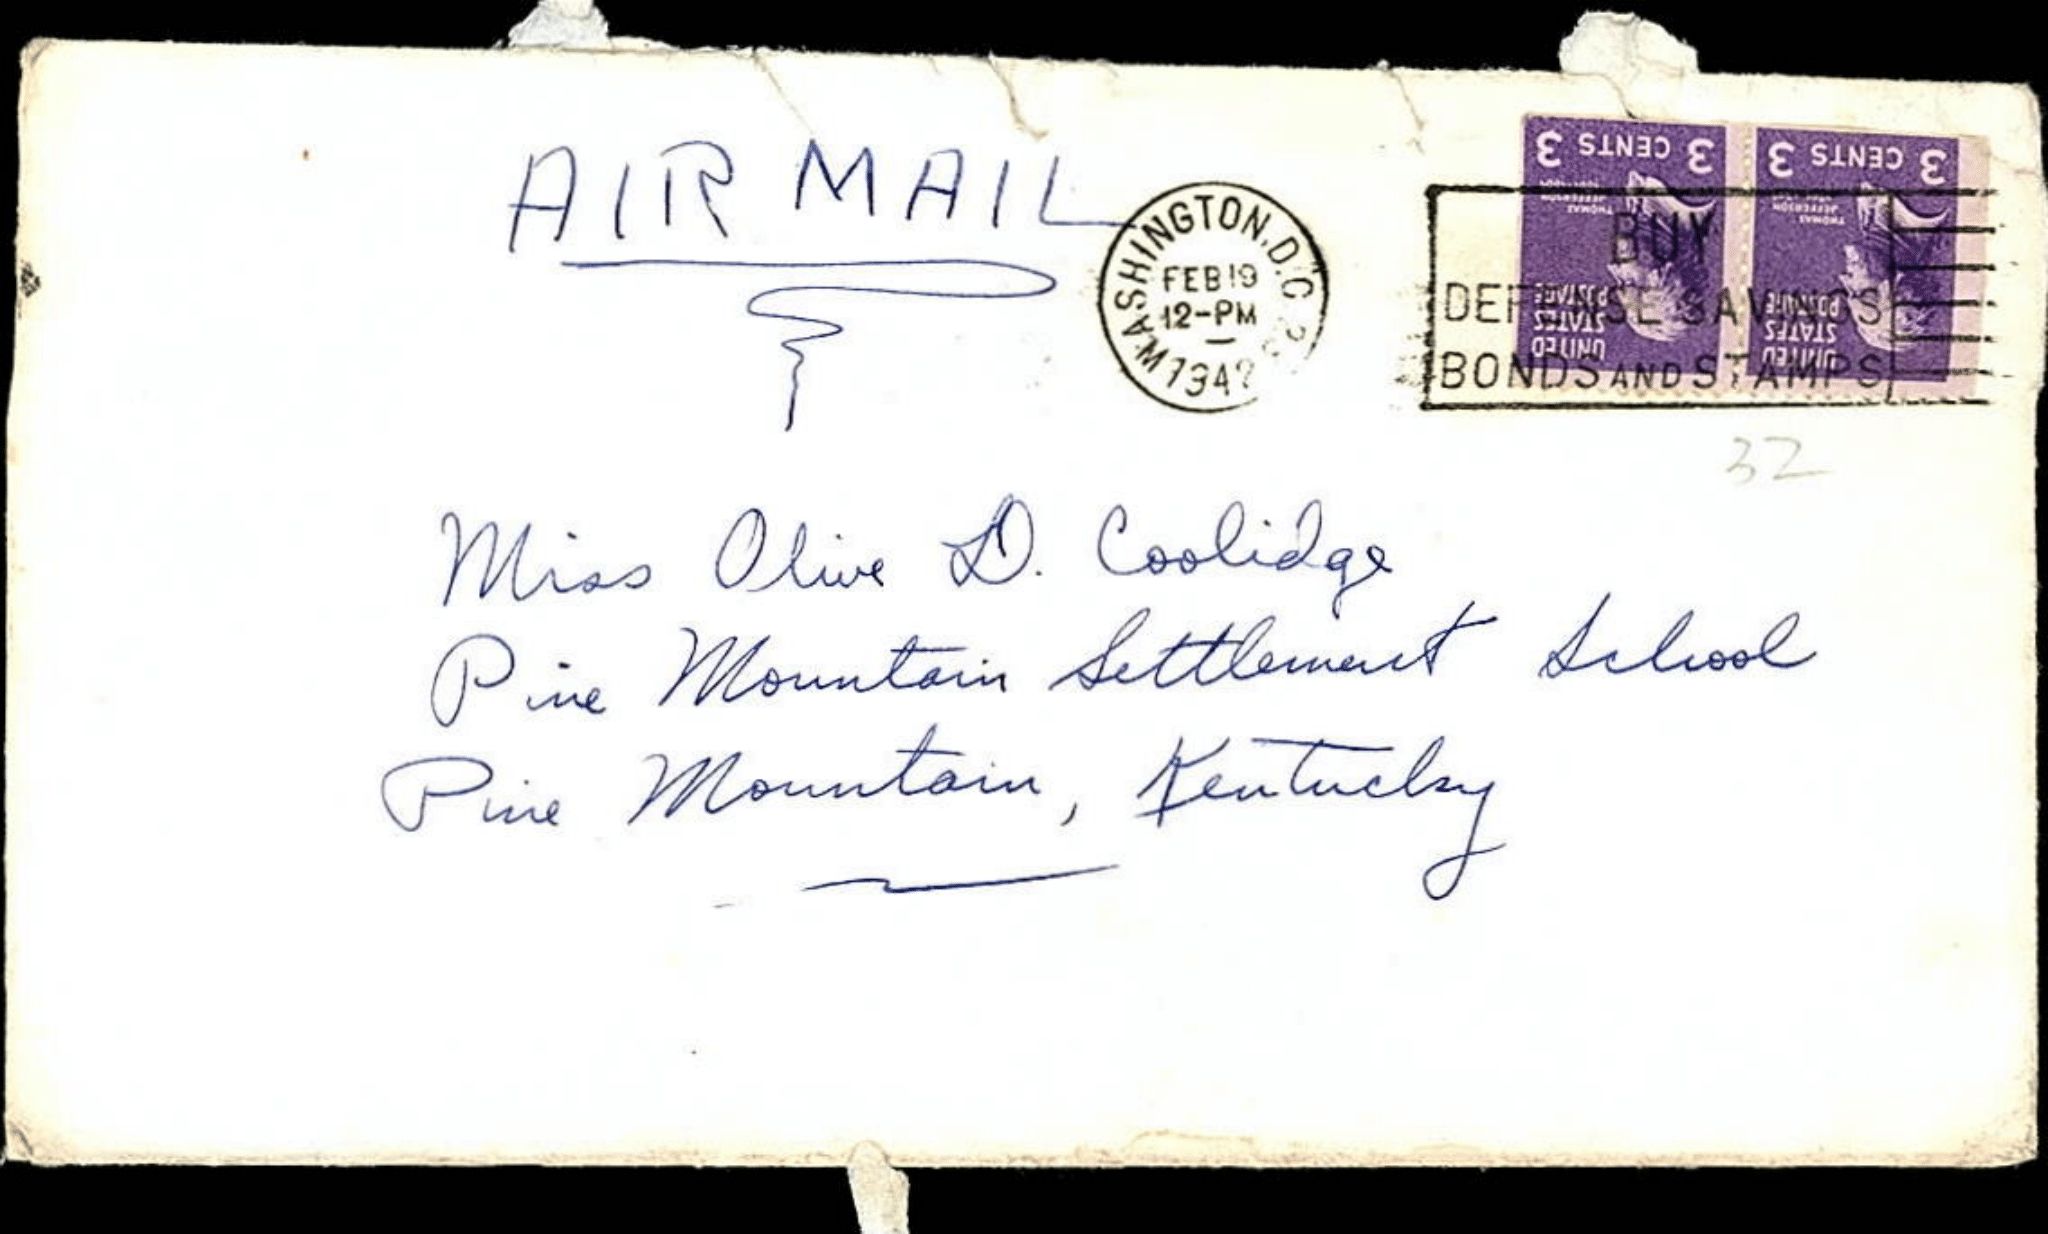 AIR MAIL
WASHINGTON, D.C.
FEB 19
12-PM
1942
BUY
DEFENSE SAVINGS
BONDS AND STAMPS
3 CENTS 3
THOMAS
JEFFERSON
UNITED
STATES
POSTAGE
3 CENTS 3
THOMAS
JEFFERSON
UNITED
STATES
POSTAGE
32
Miss Olive D. Coolidge
Pine Mountain Settlement School
Pine Mountain, Kentucky